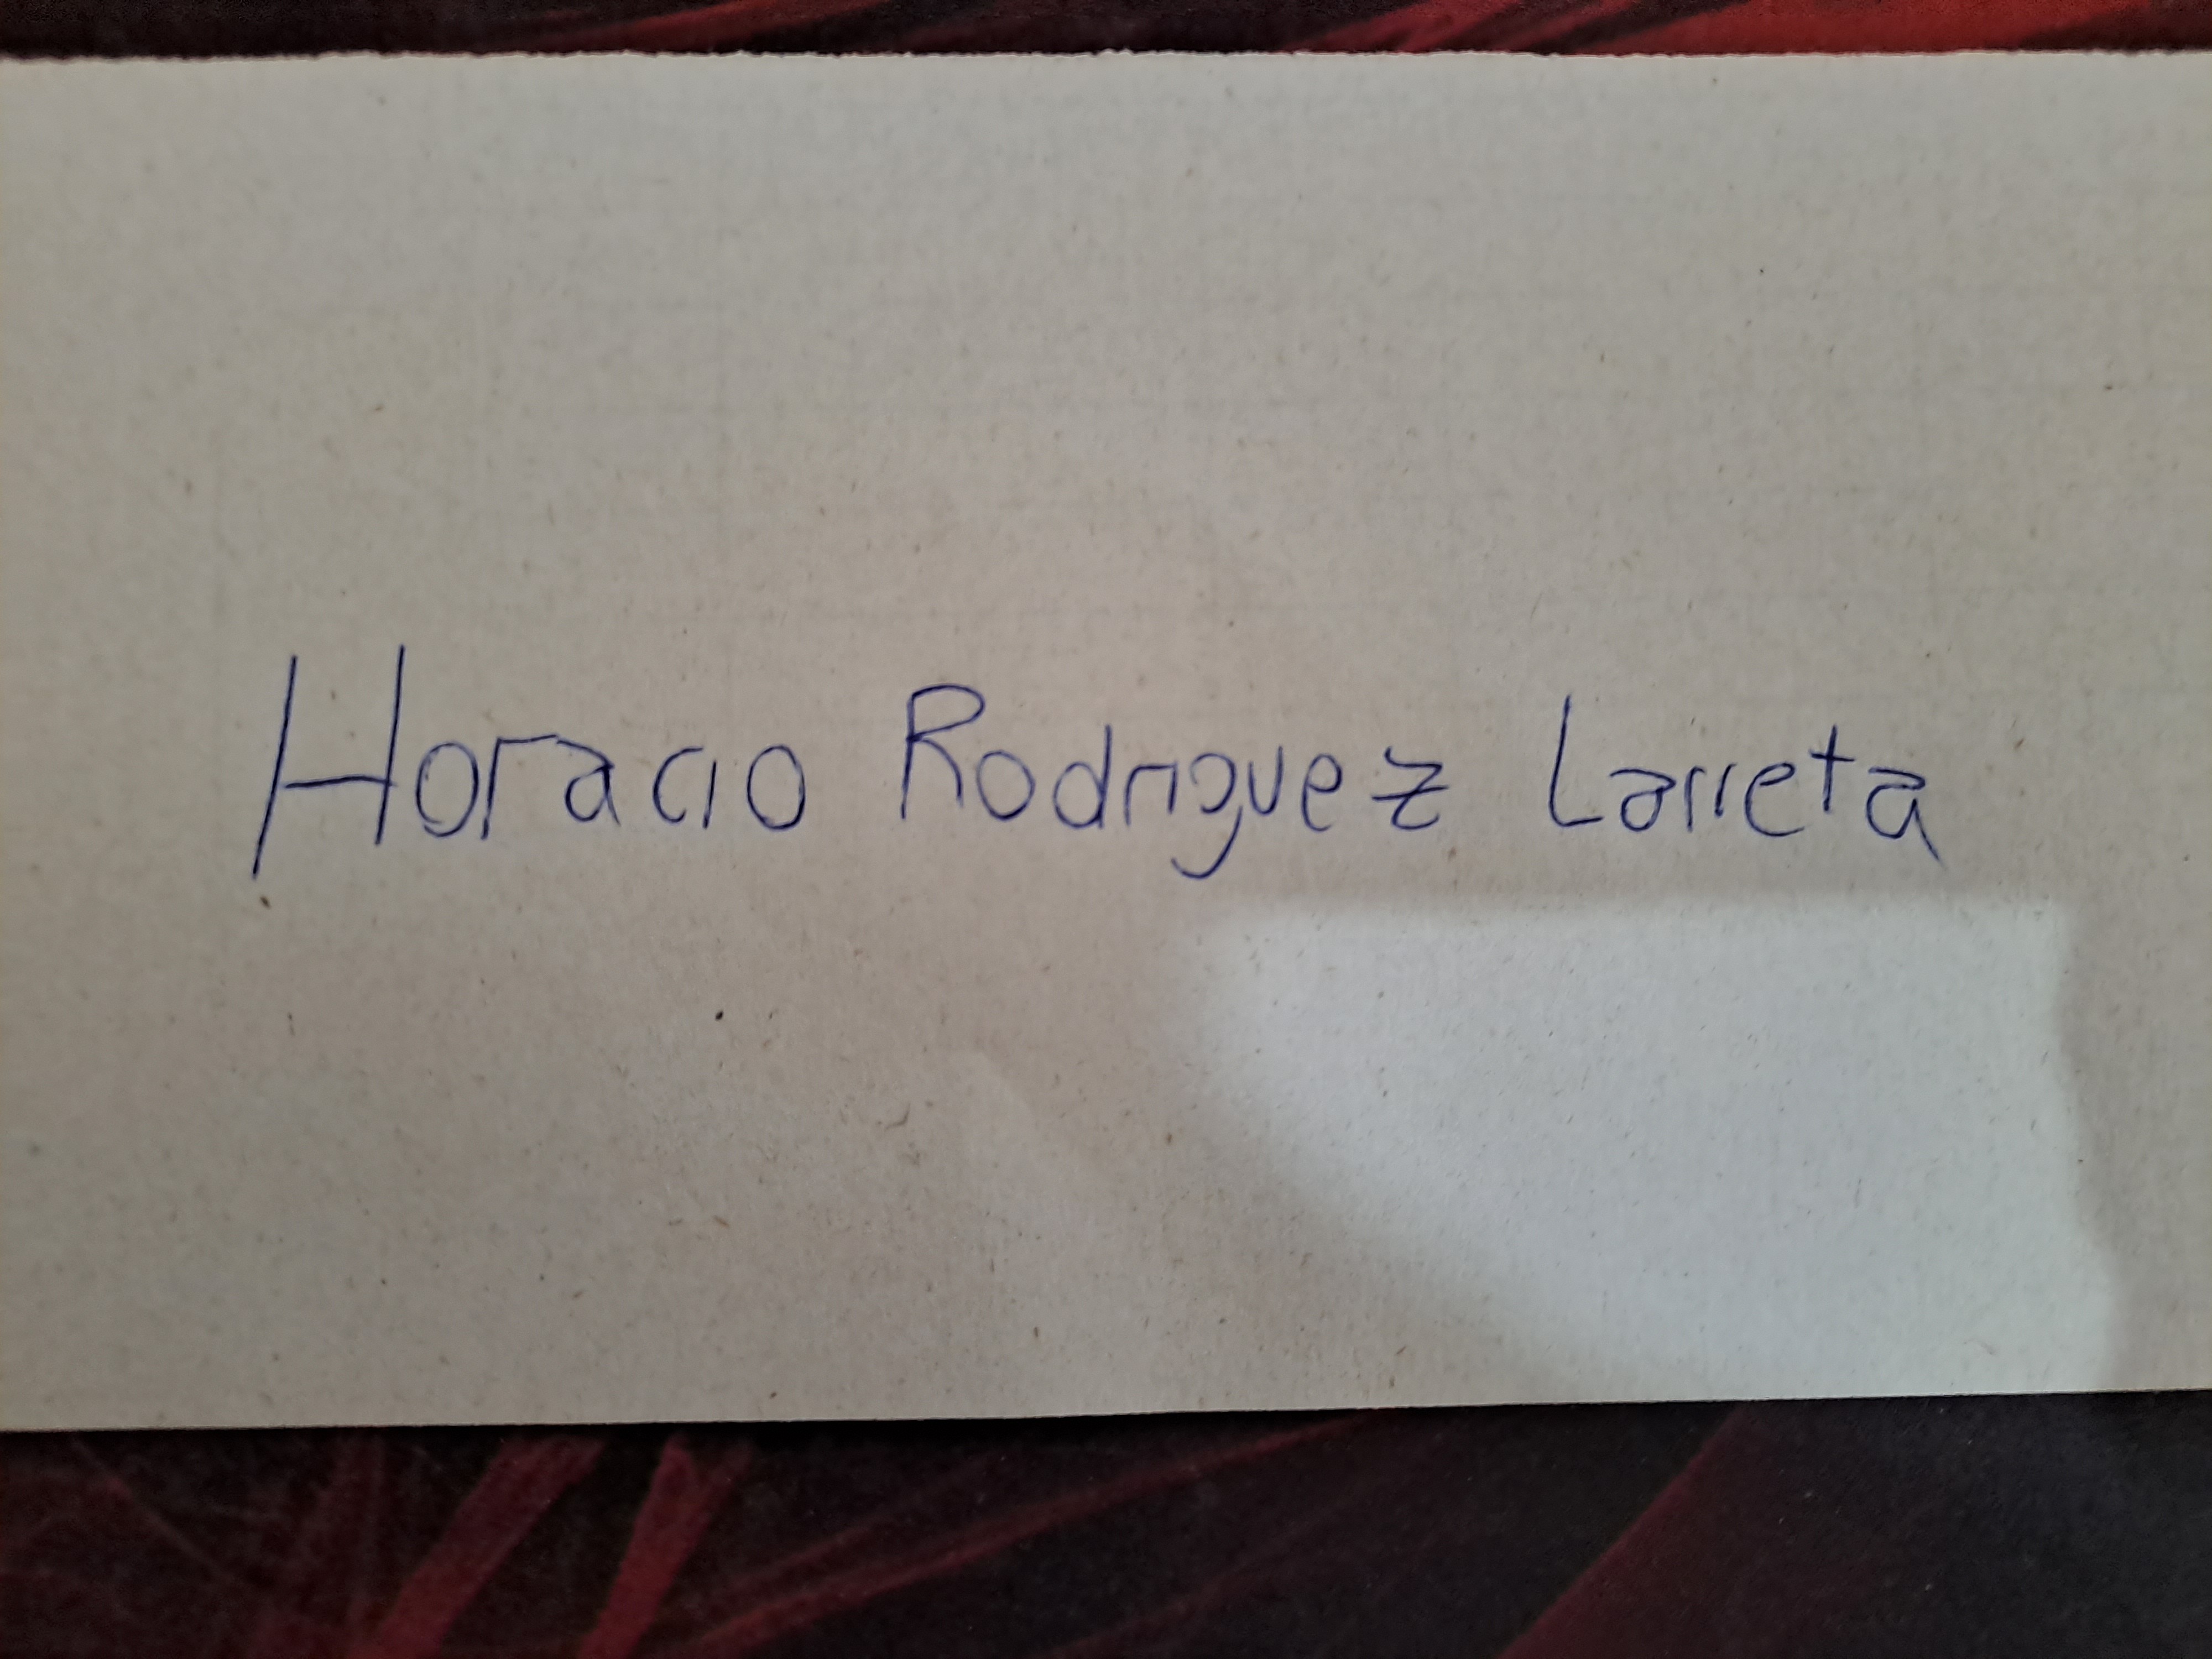 Horacio Rodriguez Larreta